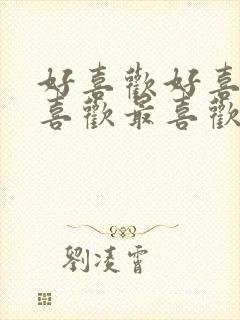 好喜歡好喜
喜歡最喜歡
劉凌霄